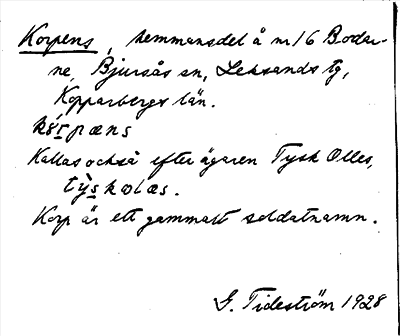 Korpens, hemmansdel å nr 16 Bodar-
ne, Bjursås sn, Leksands tg,
Kopparbergs län.
Kallas också efter ägaren Tysk Olles,
Korp är ett gammalt soldatnamn.
G. Tideström 1928